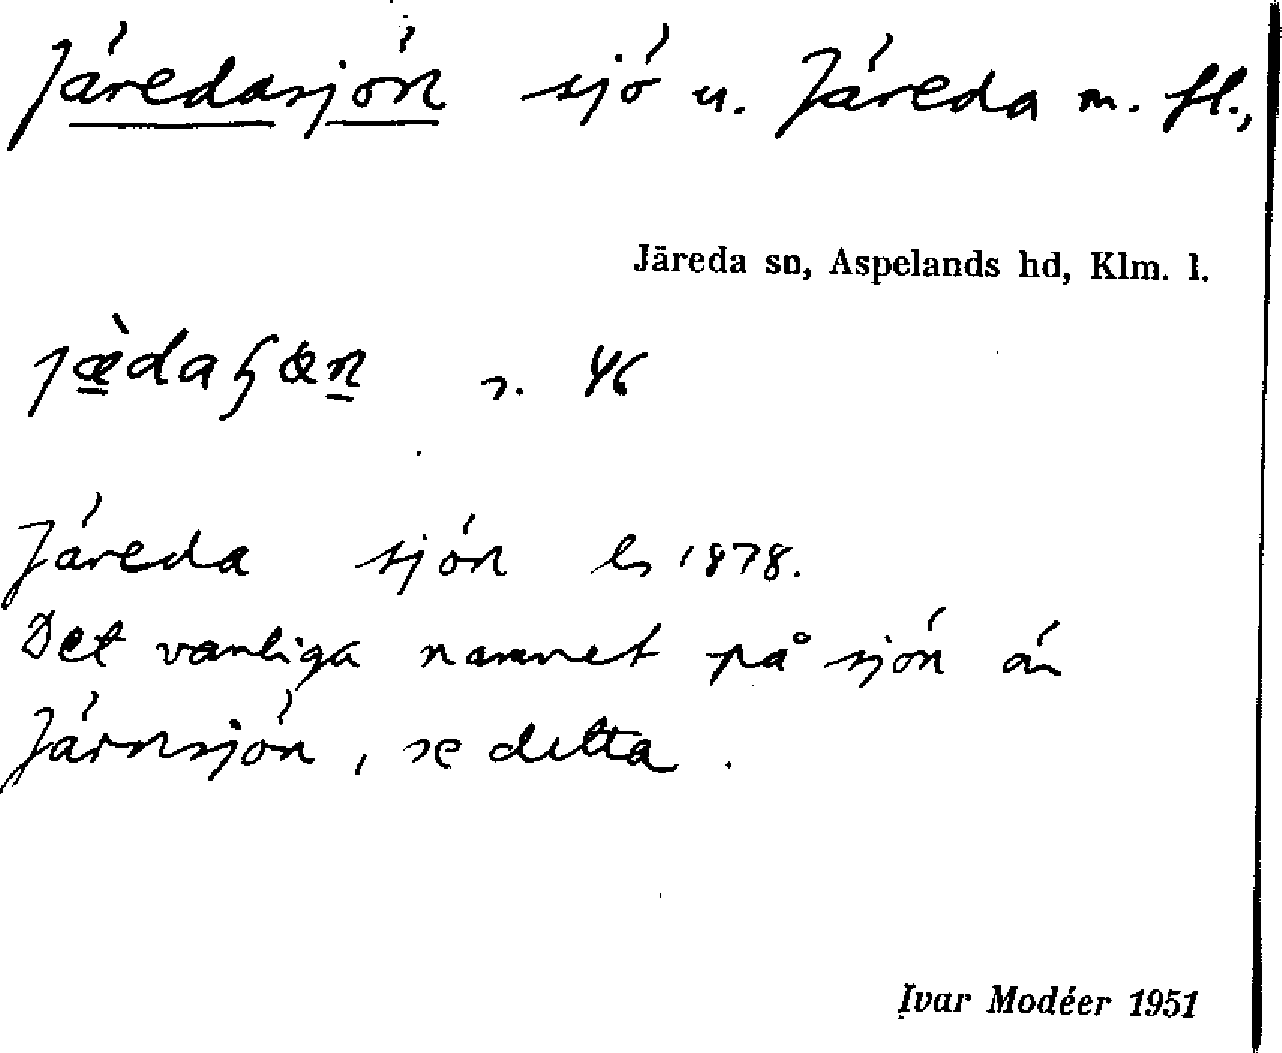 Järedasjön sjö u. Järeda m. fl.,
Järeda sn, Aspelands hd, Klm. l.
s. 46
Järeda sjön Es 1878.
Det vanliga namnet på sjön än
Järnsjön, se detta.
Ivar Modéer 1951